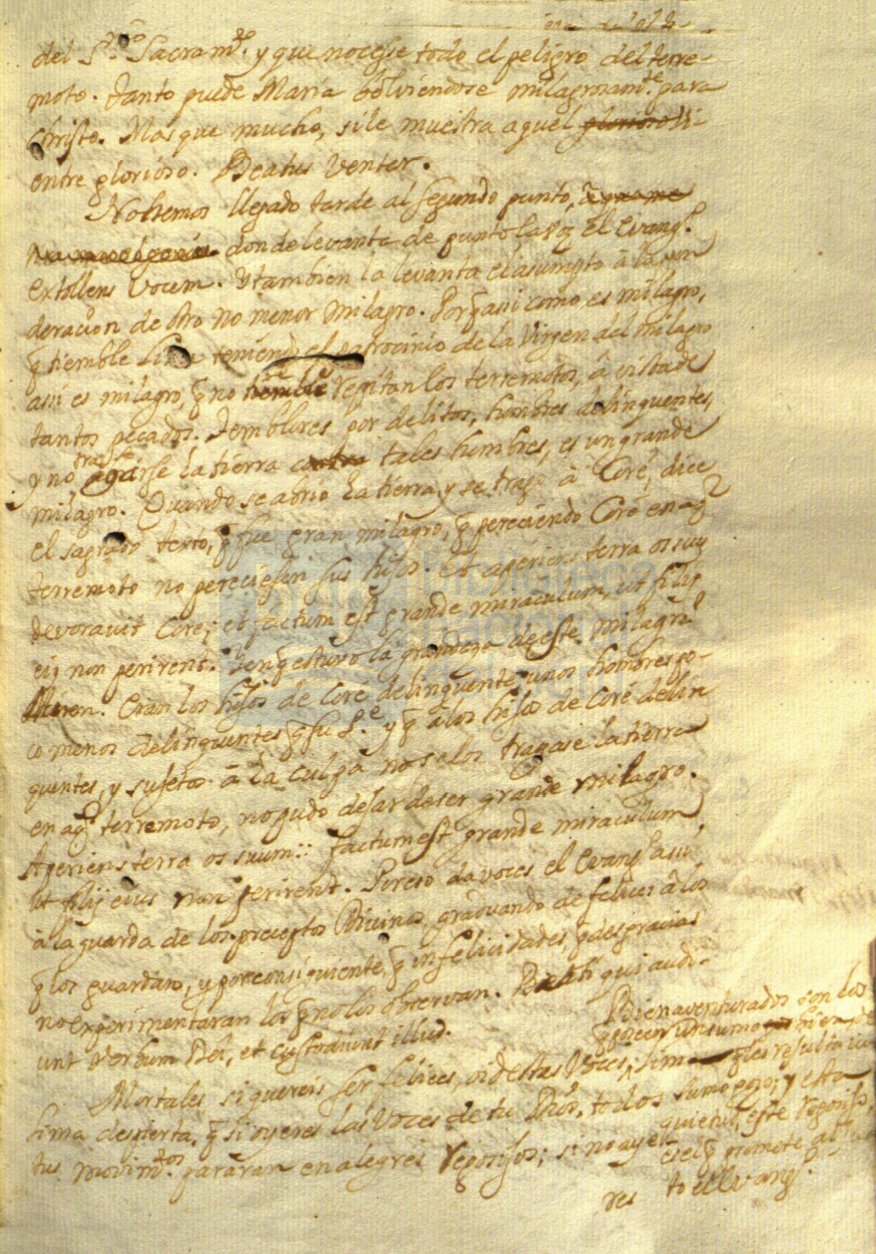 del S.mo Sacram.to y que nocesse todo el peligro del terre-
moto. Tanto puede Maria bolviendose milagrosam.te para
Christo. Mas que mucho, si le muestra aquel glorioso Vi-
entre glorioso. Beatus Venter.
No hemos llegado tarde al segundo punto,
donde levanta de punto la voz el Evang.o
extollens vocem. Y tambien la levanta el asumpto à la pon
deracion de otro no menor milagro. Porq̃ assi como es milagro,
q̃ tiemble Lima teniendo el patrocinio de la Virgen del milagro
assi es milagro, q̃ no se repitan los terremotos, à vista de
tantos pecados. Temblores por delitos, hombres delinquentes,
y no tragarse la tierra contra tales hombres, es un grande
milagro. Quando se abrio la tierra, y se trago à Coré, dice
el sagrado texto, q̃ fue gran milagro, q̃ pereciendo Coré en aq.l
terremoto no pereciessen sus hijos. Et aperiens terra os suũ
devoravit Core; et factum est grande miraculum, ut filij
eij non perirent. En q̃ estuvo la grandeza de este milagro?
Miren. Eran los hijos de Core delinquente, unos hombres po-
co menos delinquentes q̃ su P.e y q̃ à los hijos de Coré delin
quentes, y sujetos à la culpa no se los tragase la tierra
en aq.l terremoto, no pudo dejar de ser grande milagro.
Aperiens terra os suum:: factum est grande miraculum
ut filij eius non perirent. Por eso da voces el Evang.o assi
à la guarda de los preceptos Divinos, graduando de felices à los
q̃ los guardaro, y por consiguiente, q̃ infelicidades, q̃ desgracias
no experimentaran los q̃ no los observan. Beati qui audi-
unt verbum Dei, et custodiunt illud.
Mortales si quereis ser felices, oid estas voces;
Lima despierta, q̃ si oyeres las voces de tu Dios, todos
tus movim.tos pararan en alegres reposos; si no ay
Bienaventurados son los
bien de
q̃ les resulta un
sumo gozo; y esta
quietud, este reposo,
es el q̃ promete al
res to el Evang.o